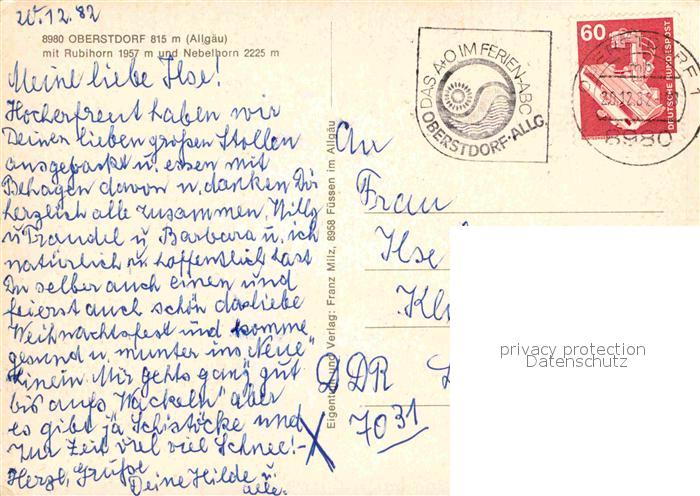 20.12.82
8980 OBERSTDORF 815 m (Allgäu)
mit Rubihorn 1957 m und Nebelhorn 2225 m
Meine liebe Ilse!
Hocherfreut haben wir
Deinen lieben großen Stollen
ausgepackt u. essen mit
Behagen davon u. danken Dir
herzlich alle zusammen, Willy
u Traudel u Barbara u. ich
natürlich u. hoffentlich hast
Du selber auch einen und
feierst auch schön das liebe
Weihnachtsfest und komme
gesund u. munter ins "Neue"
hinein. Mir gehts ganz gut
bis aufs "Wackeln" aber
es gibt ja Schistöcke und
zur Zeit viel viel Schnee! -
Herzl. Grüße
Deine Hilde u.
alle.
Eigentum und Verlag: Franz Milz, 8958 Füssen im Allgäu
DAS A+O IM FERIEN-ABC
OBERSTDORF·ALLG.
60
DEUTSCHE BUNDESPOST
8980
An
Frau
Ilse
DDR
7031
privacy protection
Datenschutz